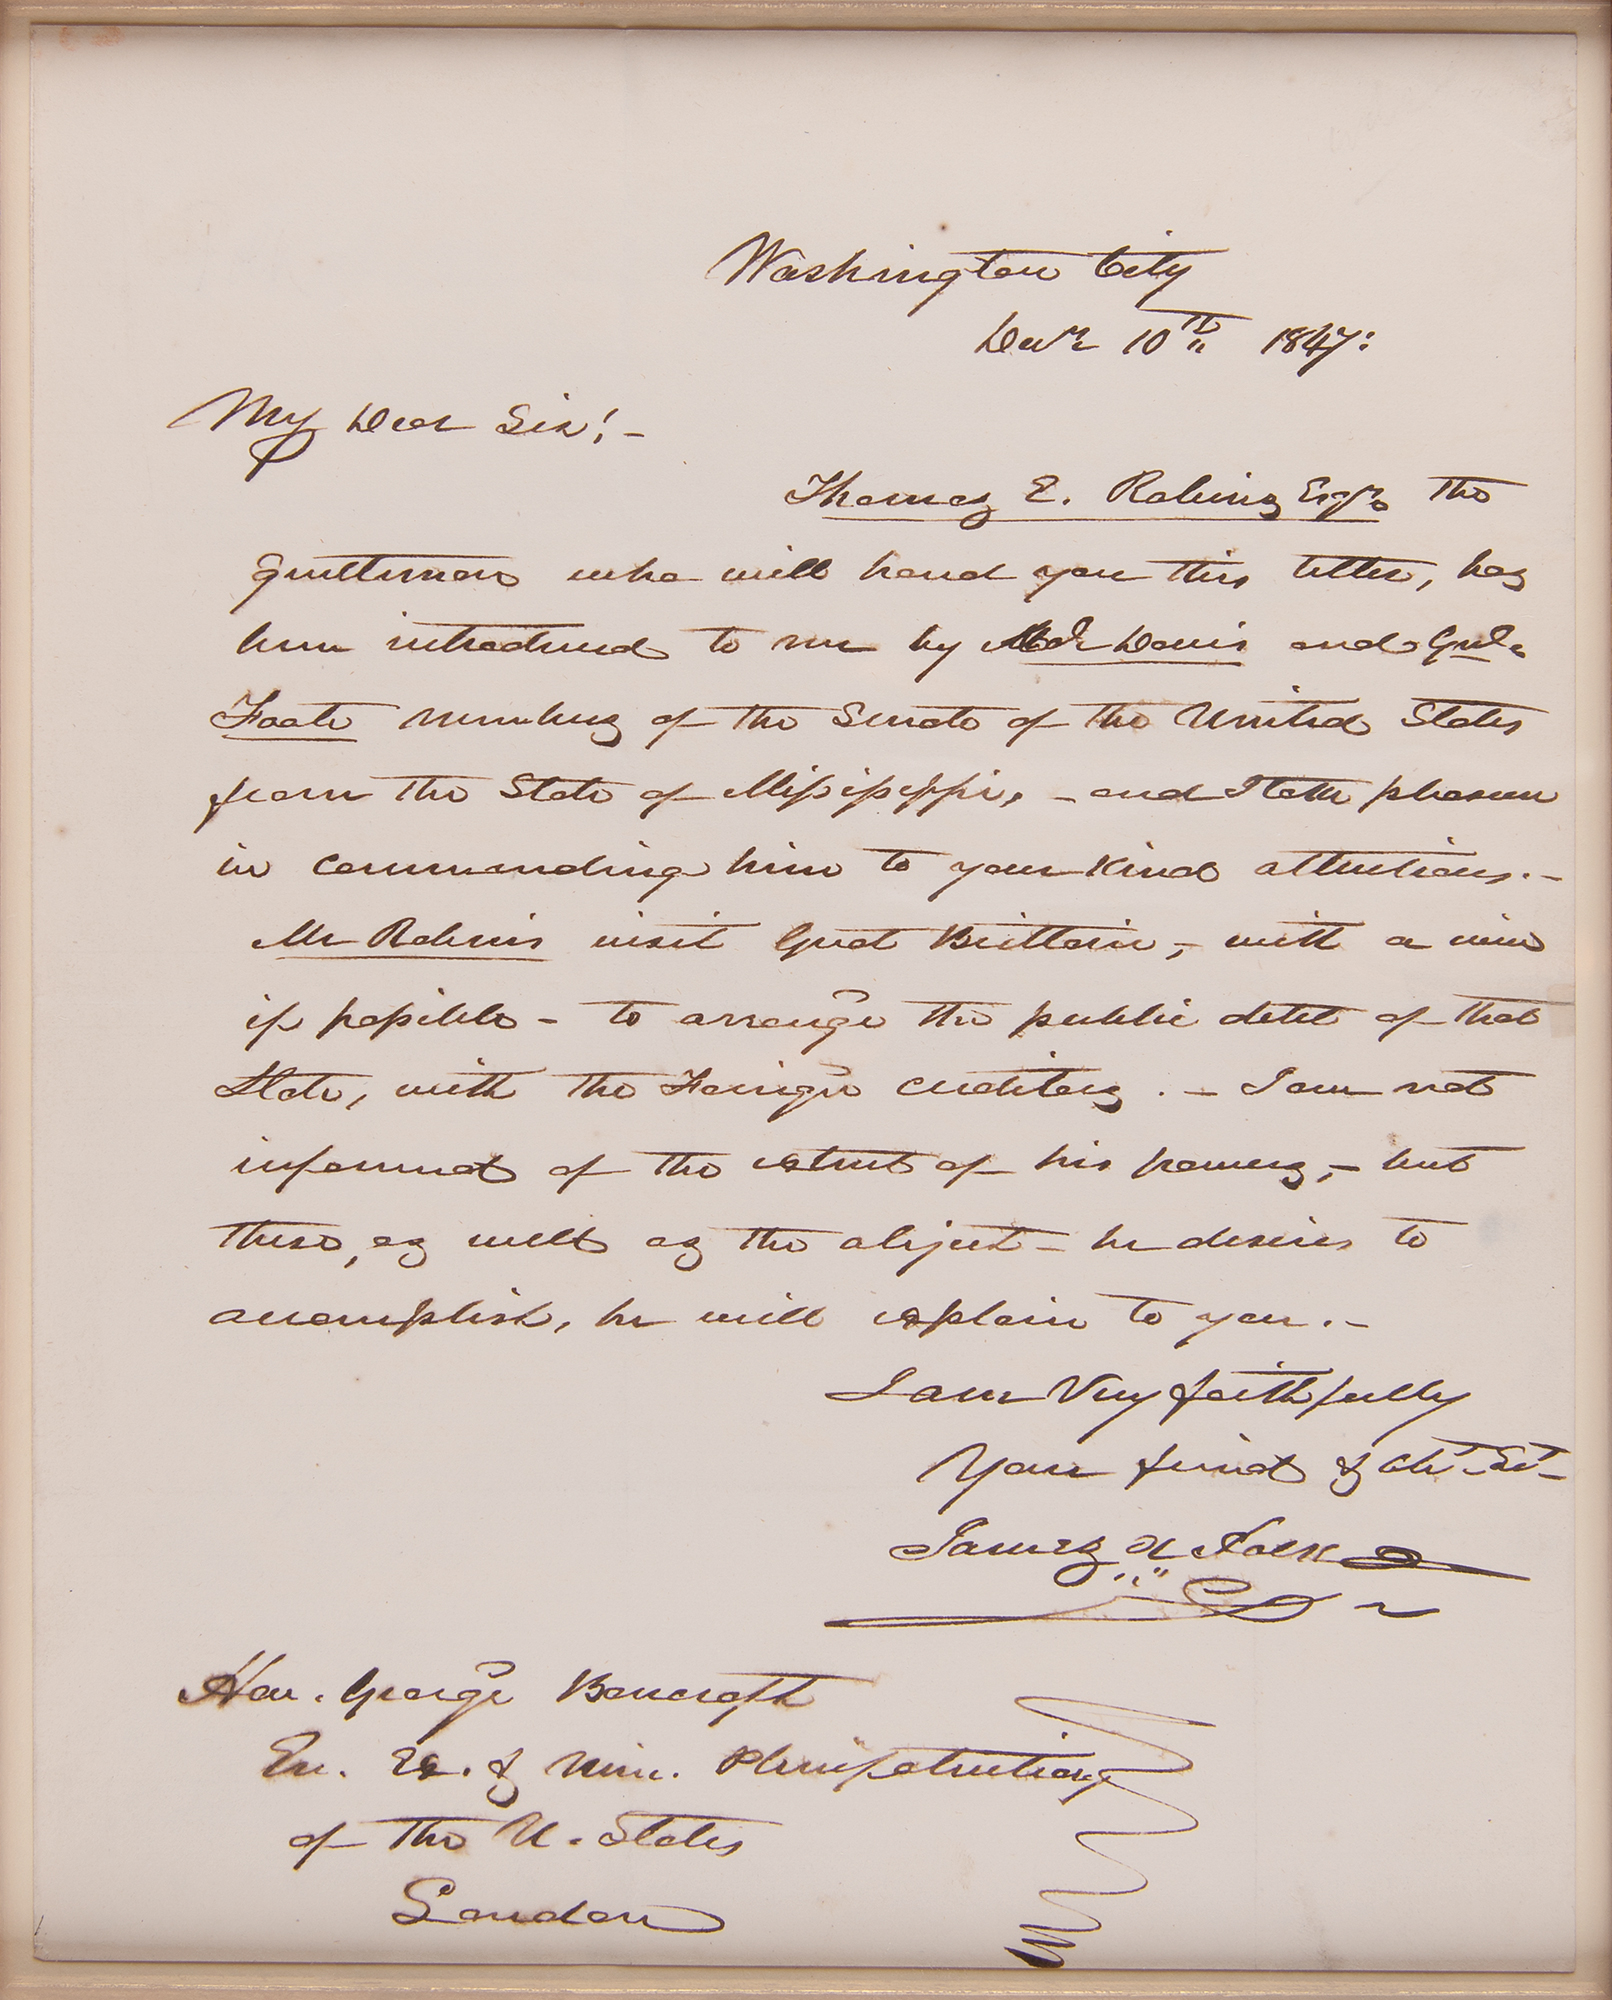 Washington City
Decr 10th 1847:
My Dear Sir! -
Thomas E. Robins Esqr. the
gentleman who will hand you this letter, has
been introduced to me by Mr Davis and Genl.
Foote members of the Senate of the United States
from the State of Missisippi, - and I take pleasure
in commending him to your kind attentions. -
Mr Robins visit Great Brittain, - with a view
if possible - to arrange the public debt of that
State, with the Foreign creditors. - I am not
informed of the extent of his powers, - but
these, as well as the object - he desires to
accomplish, he will explain to you. -
I am Very faithfully
Your friend & Obt. Sert.
James K Polk
Hon. George Bancroft
En. Ex. & Min. Plenipotentiary
of the U. States
London